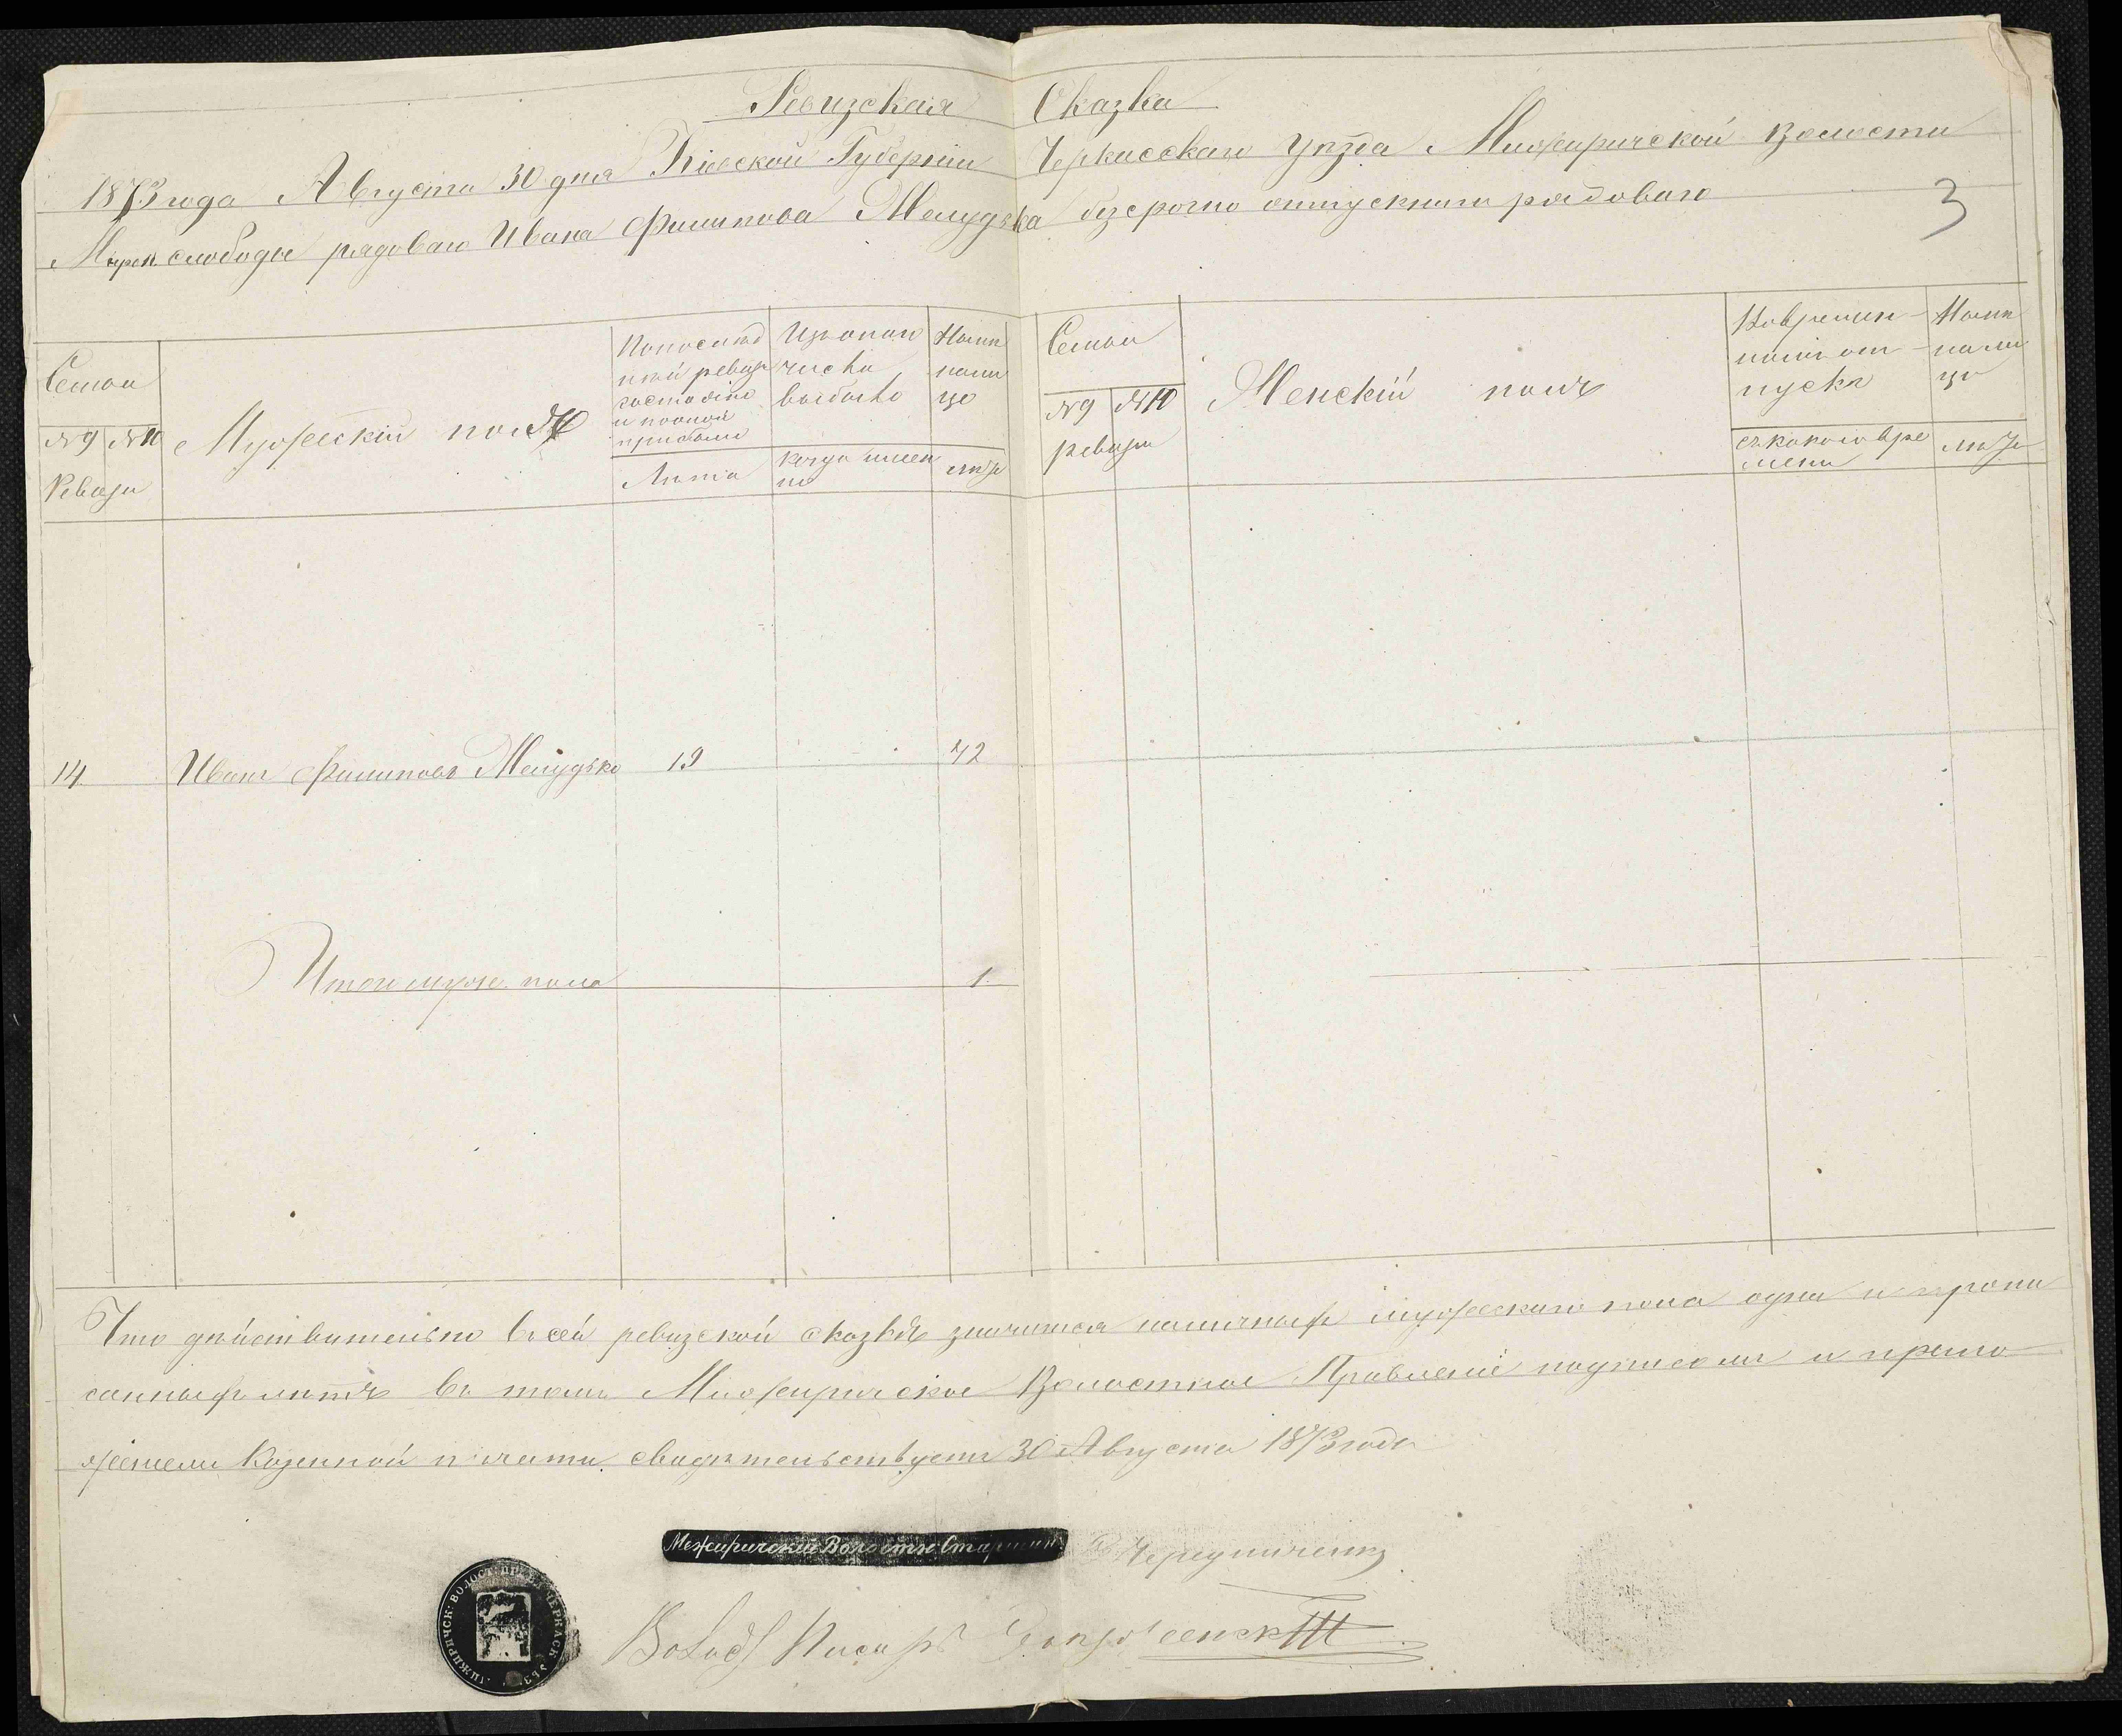 Ревизская Сказка
1873 года Августа 30 дня Кіевской Губерніи Черкасскаго Уѣзда Межиричской Волости
слободы рядоваго Ивана Филипова безсрочно отпускнаго рядоваго
3
Семьи
№ 9 № 10
Ревизіи
Мужескій полъ
По послѣд
ней ревизіи
состояло
и послѣ
прибыло
Лѣта
Изъ онаго
числа
выбыло
когда имен
но
Нынѣ
на ли
цо
лѣта
Семьи
№ 9 № 10
ревизіи
Женскій полъ
Во времен
номъ от
пускѣ
съ какого вре
мени
Нынѣ
на ли
цо
лѣта
14 Иванъ Филиповъ 19 42
Итого муже. пола 1
Что дѣйствительно въ сей ревизской сказкѣ значится наличныхъ мужескаго пола одна и пропи
санныхъ лѣтъ въ томъ Межиричское Волостное Правленіе подписомъ и прило
женіемъ Казенной печати свидѣтельствуетъ 30 Августа 1873 года
Межиричскій Волостн. Старшина
Волост Писарь